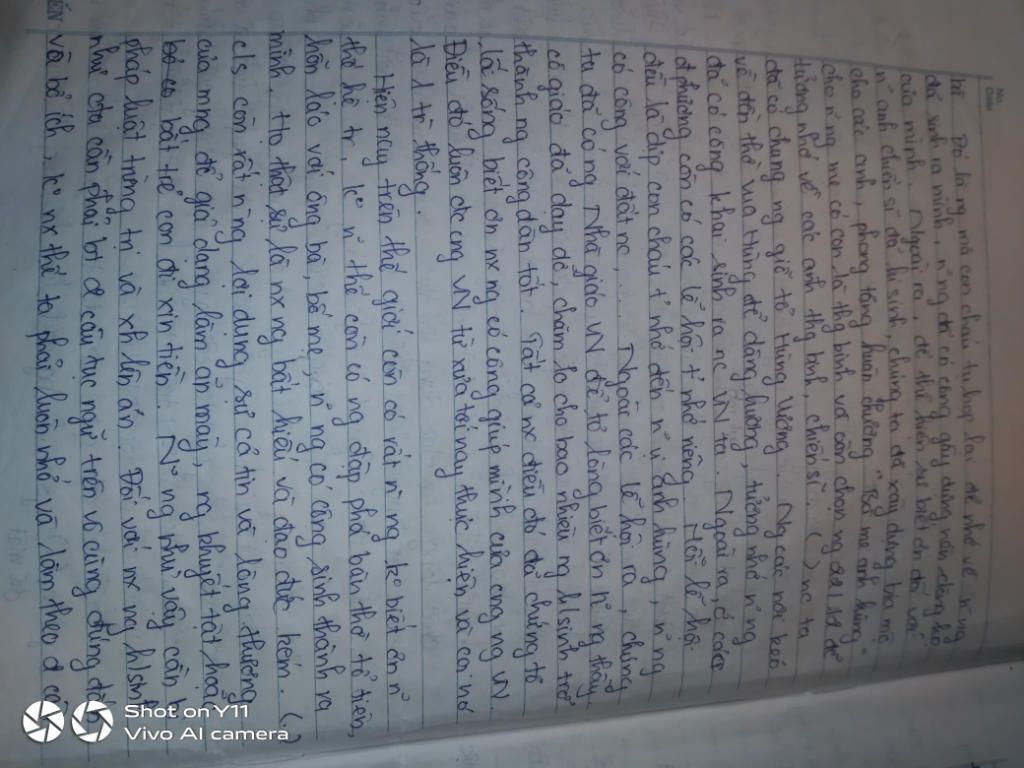 No.
Date
Đó là ng mà con cháu tụ họp lại để nhớ về n ng
đã sinh ra mình, n ng đã có công gây dựng nên dòng họ
của mình. Ngoài ra, để thể hiện sự biết ơn đối với
n anh chiến sĩ đã hi sinh, chúng ta đã xây dựng bia mộ
cho các anh, phong tặng huân chương "Bà mẹ anh hùng"
cho n ng mẹ có con là thg binh và còn chọn ng để
tưởng nhớ về các anh thg binh, chiến sĩ. ( ) nc ta
đã có chung ng giỗ tổ Hùng Vương. Ng các nơi kéo
về đền thờ vua Hùng để dâng hương, tưởng nhớ n ng
đã có công khai sinh ra nc VN ta. Ngoài ra, ở các
địa phương còn có các lễ hội t' nhớ riêng. Mỗi lễ hội
đều là dịp con cháu t' nhớ đến n vị anh hùng, n ng
có công với đất nc,... Ngoài các lễ hội ra, chúng
ta đã có ng Nhà giáo VN để tỏ lòng biết ơn n ng thầy
cô giáo đã dạy dỗ, chăm lo cho bao nhiêu ng h/sinh trở
thành ng công dân tốt. Tất cả nx điều đó đã chứng tỏ
lối sống biết ơn nx ng có công giúp mình của cng ng VN.
Điều đó luôn đc cng VN từ xưa tới nay thực hiện và coi nó
là 1 tr thống.
Hiện nay trên thế giới còn có rất n ng k° biết ơn n
thế hệ tr, k° n thế còn có ng đập phá bàn thờ tổ tiên,
hỗn láo với ông bà, bố mẹ, n ng có công sinh thành ra
mình. Họ thật sự là nx ng bất hiếu và đạo đức kém. (.)
c/s còn rất n ng lợi dụng sự cả tin và lòng thương
của mng để giả dạng làm ăn mày, ng khuyết tật hoặc
bắt trẻ con đi xin tiền. N ng như vậy cần
pháp luật trừng trị và xh lên án. Đối với nx ng h/sinh
như cta cần phải bt đ câu tục ngữ trên vô cùng đúng đắn
và bổ ích, k° nx thế ta phải luôn nhớ và làm theo đ câ